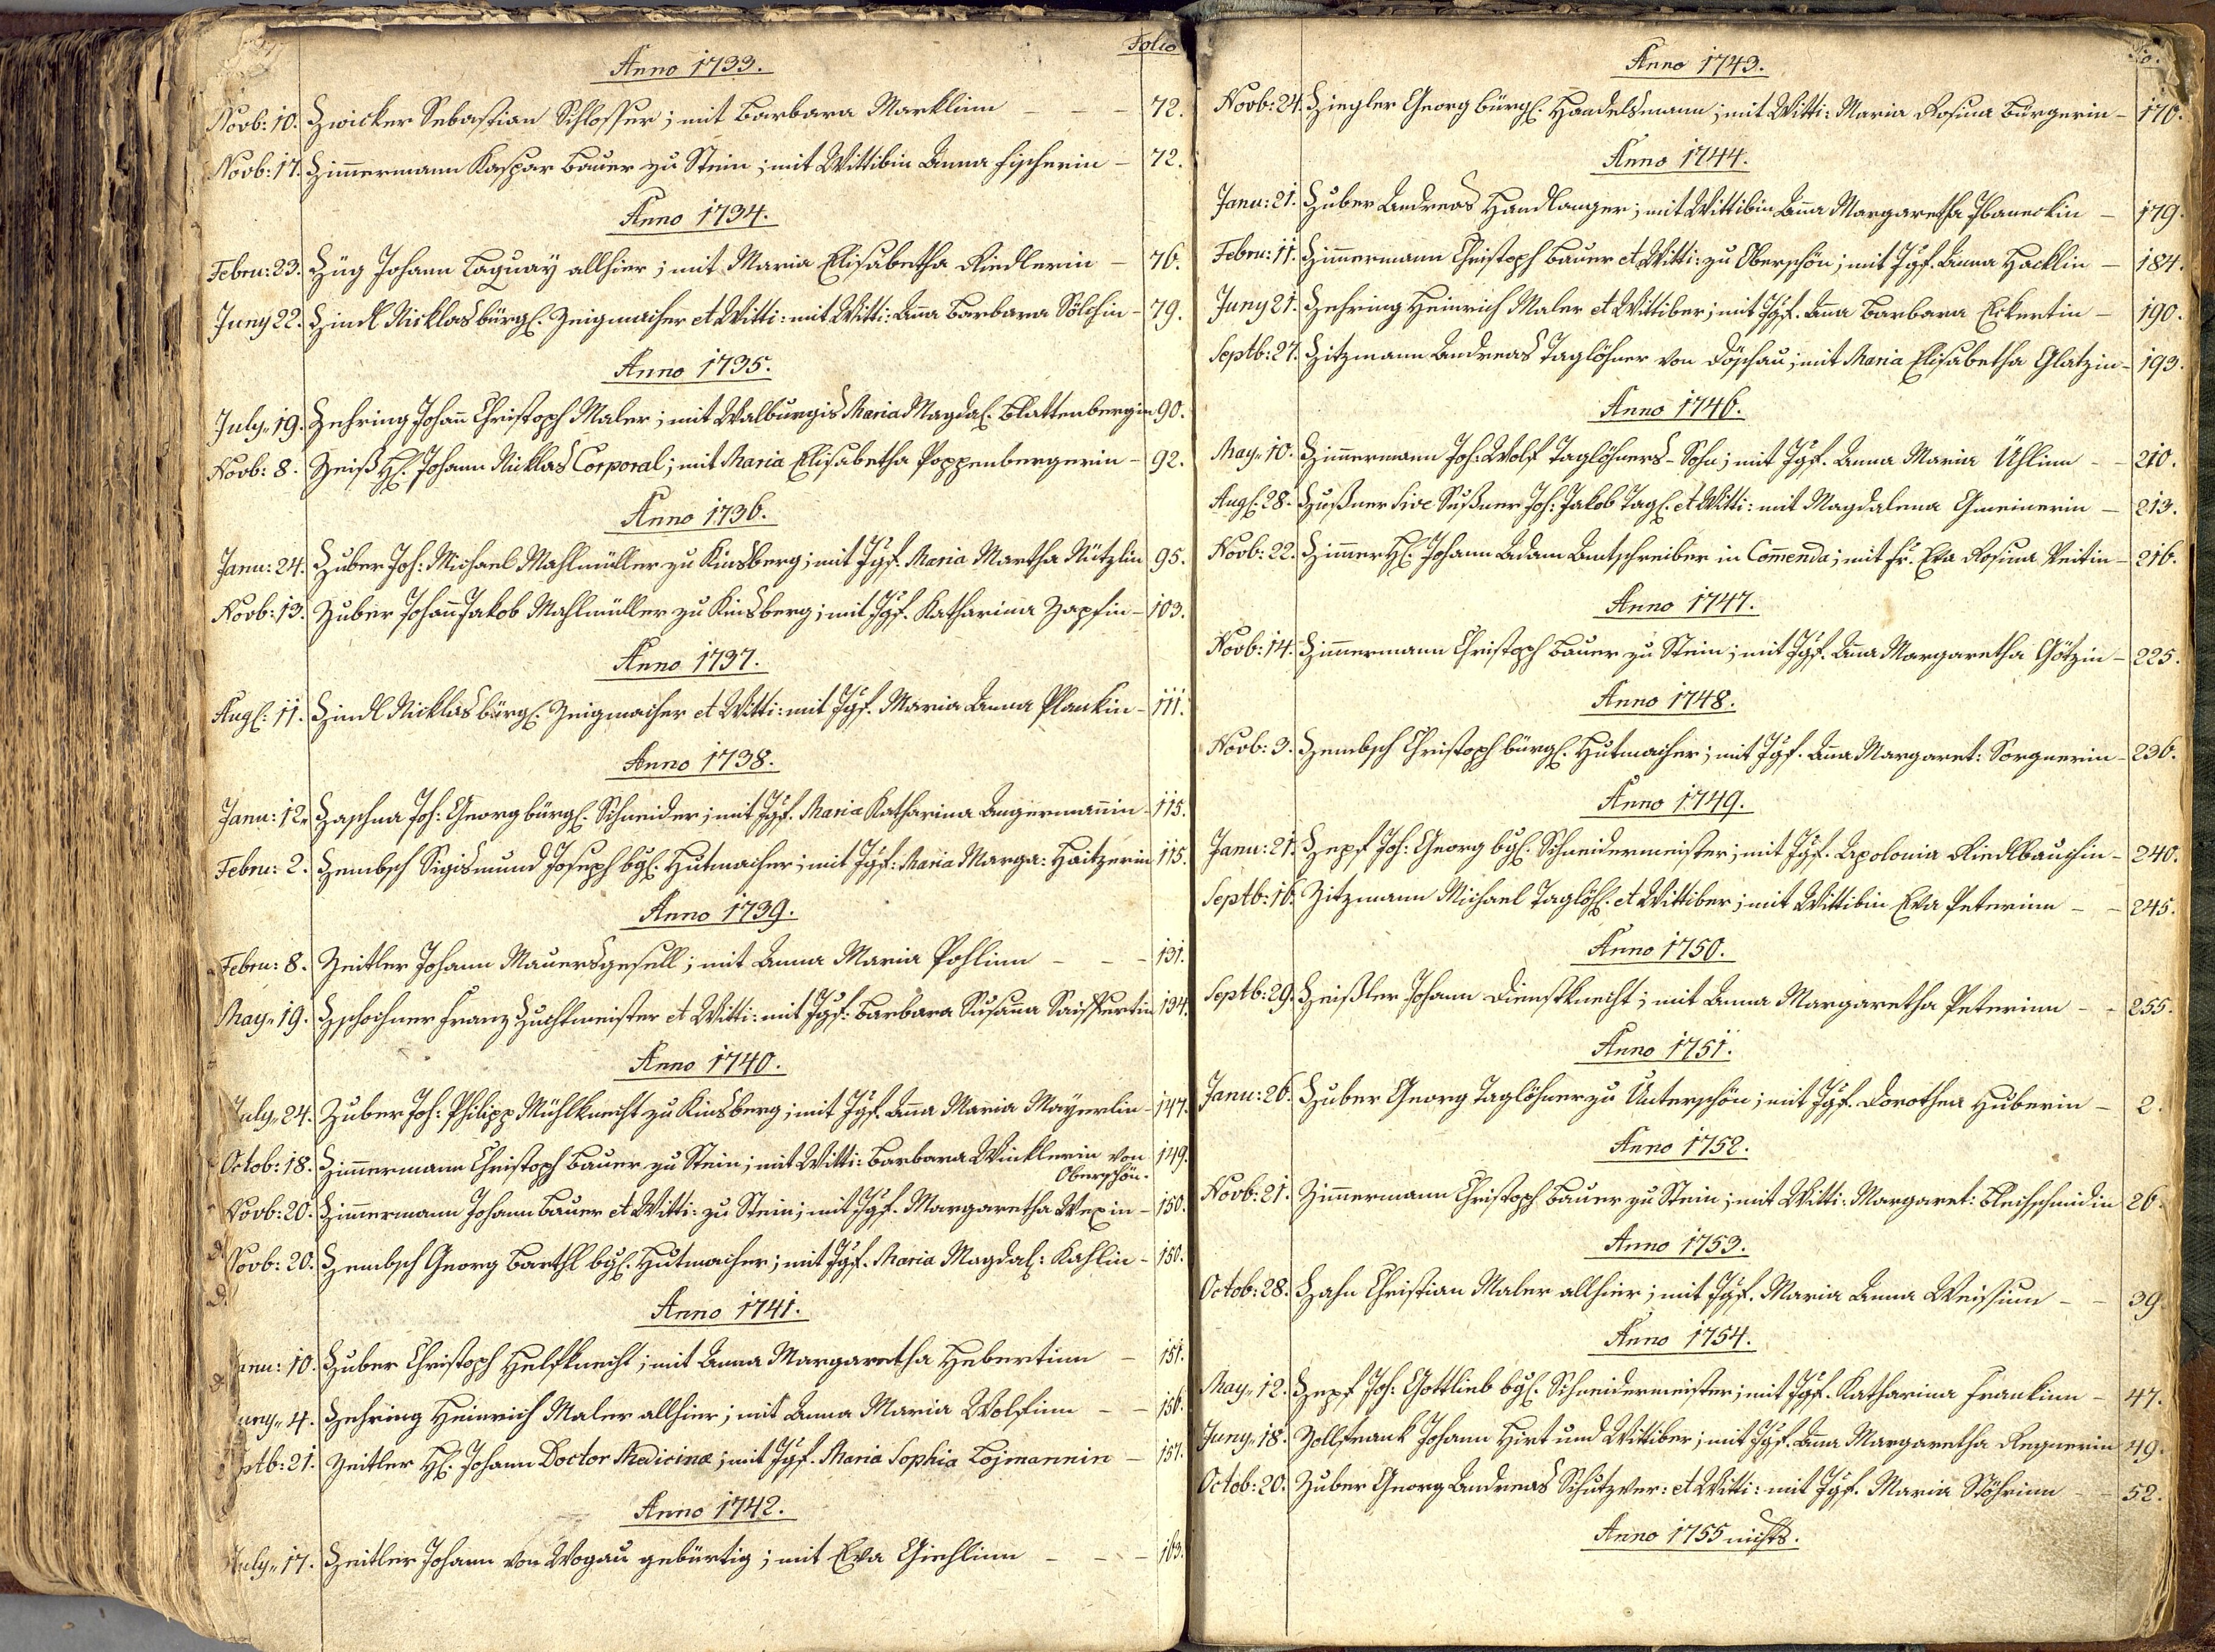 Folio
Anno 1733.
Novb: 10. Zwicker Sebastian Schlosser; mit Barbara Marklinn - - - 72.
Novb: 17. Zimmermann Kaspar Bauer zu Stein; mit Wittibin Anna Fischerin - 72.
Anno 1734.
Febru: 23. Züg Johann Laquaÿ allhier; mit Maria Elisabetha Riedlerin - 76.
Juny 22. Zindl Nicklas bürgl. Zeigmacher et Witti: mit Witti: Anna Barbara Sölchin - 79.
Anno 1735.
July„ 19. Zehring Johann Christoph Maler; mit Walburgis Maria Magdal. Blattenbergin 90.
Novb: 8. Zeiß H. Johann Nicklas Corporal; mit Maria Elisabetha Poppenbergerin - 92.
Anno 1736.
Janu: 24. Zuber Joh: Michael Mahlmüller zu Kinsberg; mit Jgf. Maria Martha Nützlin 95.
Novb: 13. Zuber Johann Jakob Mahlmüller zu Kinsberg; mit Jgf. Katharina Zapfin - 103.
Anno 1737.
Aug: 11. Zindl Nicklas bürgl. Zeigmacher et Witti: mit Jgf. Maria Anna Plankin - 111.
Anno 1738.
Janu: 12„ Zaschna Joh: Georg bürgl. Schneider; mit Jgf. Maria Katharina Angermannin - 115.
Febru: 2. Zembsch Sigismund Joseph bgl. Hutmacher; mit Jgf: Maria Marga: Haitzerin 115.
Anno 1739.
Febru: 8. Zeitler Johann Mauersgesell; mit Anna Maria Pohlinn - - - 131.
May„ 19. Zschochner Franz Zuchtmeister et Witti: mit Jgf: Barbara Susanna 134.
Anno 1740.
July„ 24. Zuber Joh: Philipp Mühlknecht zu Kinsberg; mit Jgf. Anna Maria Mayerlin - 147.
Octob: 18. Zimmermann Christoph Bauer zu Stein; mit Witti: Barbara Winklerin von 149.
Oberschön.
Novb: 20. Zimmermann Johann Bauer et Witti: zu Stein; mit Jgf. Margaretha Wexin - 150.
Novb: 20. Zembsch Georg Barthl bgl. Hutmacher; mit Jgf. Maria Magdal: Kahlin - 150.
Anno 1741.
anu: 10. Zuber Christoph Helfknecht; mit Anna Margaretha Hebertinn - 151.
uny„ 4. Zehring Heinrich Maler allhier; mit Anna Maria Wolfinn - - 156.
ptb: 21. Zeitler H. Johann Doctor Medicinæ; mit Jgf. Maria Sophia Lojmannin - 157.
Anno 1742.
July„ 17. Zeitler Johann von Wogau gebürtig; mit Eva Giehlinn - - - 163.
Anno 1743.
Novb: 24. Ziegler Georg bürgl. Handelsmann; mit Witti: Maria Rosina Bürgerin - 170.
Anno 1744.
Janu: 21. Zuber Andreas Handlanger; mit Wittibin Anna Margaretha - 179.
Febru: 11. Zimmermann Christoph Bauer et Witti: zu Oberschön; mit Jgf. Anna Hacklin - 184.
Juny 21. Zehring Heinrich Maler et Wittiber; mit Jgf. Anna Barbara Eckertin - 190.
Septb: 27. Zitzmann Andreas Taglöhner von Döschau; mit Maria Elisabetha Glatzin - 193.
Anno 1746.
May„ 10. Zimmermann Joh: Wolf Taglöhners-Sohn; mit Jgf. Anna Maria Ühlinn - - 210.
Aug: 28. Zußner sive Sußner Joh: Jakob Tagl. et Witti: mit Magdalena Gmeinerin - 213.
Novb: 22. Zimmer H. Johann Adam Amtschreiber in Commenda; mit Fr. Eva Rosina Veitin - 216.
Anno 1747.
Novb: 14. Zimmermann Christoph Bauer zu Stein; mit Jgf. Anna Margaretha Götzin - 225.
Anno 1748.
Novb: 3. Zembsch Christoph bürgl. Hutmacher; mit Jgf. Anna Margaret: Sorgnerin - 236.
Anno 1749.
Janu: 21. Zepf Joh: Georg bgl. Schneidermeister; mit Jgf. Apolonia Riedlbauchin - 240.
Septb: 16. Zitzmann Michael Taglöh. et Wittiber; mit Wittibin Eva Peterinn - - 245.
Anno 1750.
Septb: 29. Zeißler Johann Dienstknecht; mit Anna Margaretha Peterinn - - 255.
Anno 1751.
Janu: 26. Zuber Georg Taglöhner zu Unterschön; mit Jgf. Dorothea Huberin - 2.
Anno 1752.
Novb: 21. Zimmermann Christoph Bauer zu Stein; mit Witti: Margaret: Bleischmidin 26.
Anno 1753.
Octob: 28. Zahn Christian Maler allhier; mit Jgf. Maria Anna Weissinn - - 39.
Anno 1754.
May„ 12. Zepf Joh: Gottlieb bgl. Schneidermeister; mit Jgf. Katharina Frankinn - 47.
Juny„ 18. Zollfrank Johann Hirt und Wittiber; mit Jgf. Anna Margaretha Regnerin 49.
Octob: 20. Zuber Georg Andreas Schutzver: et Witti: mit Jgf. Maria Stöhrinn - - 52.
Anno 1755 nichts.